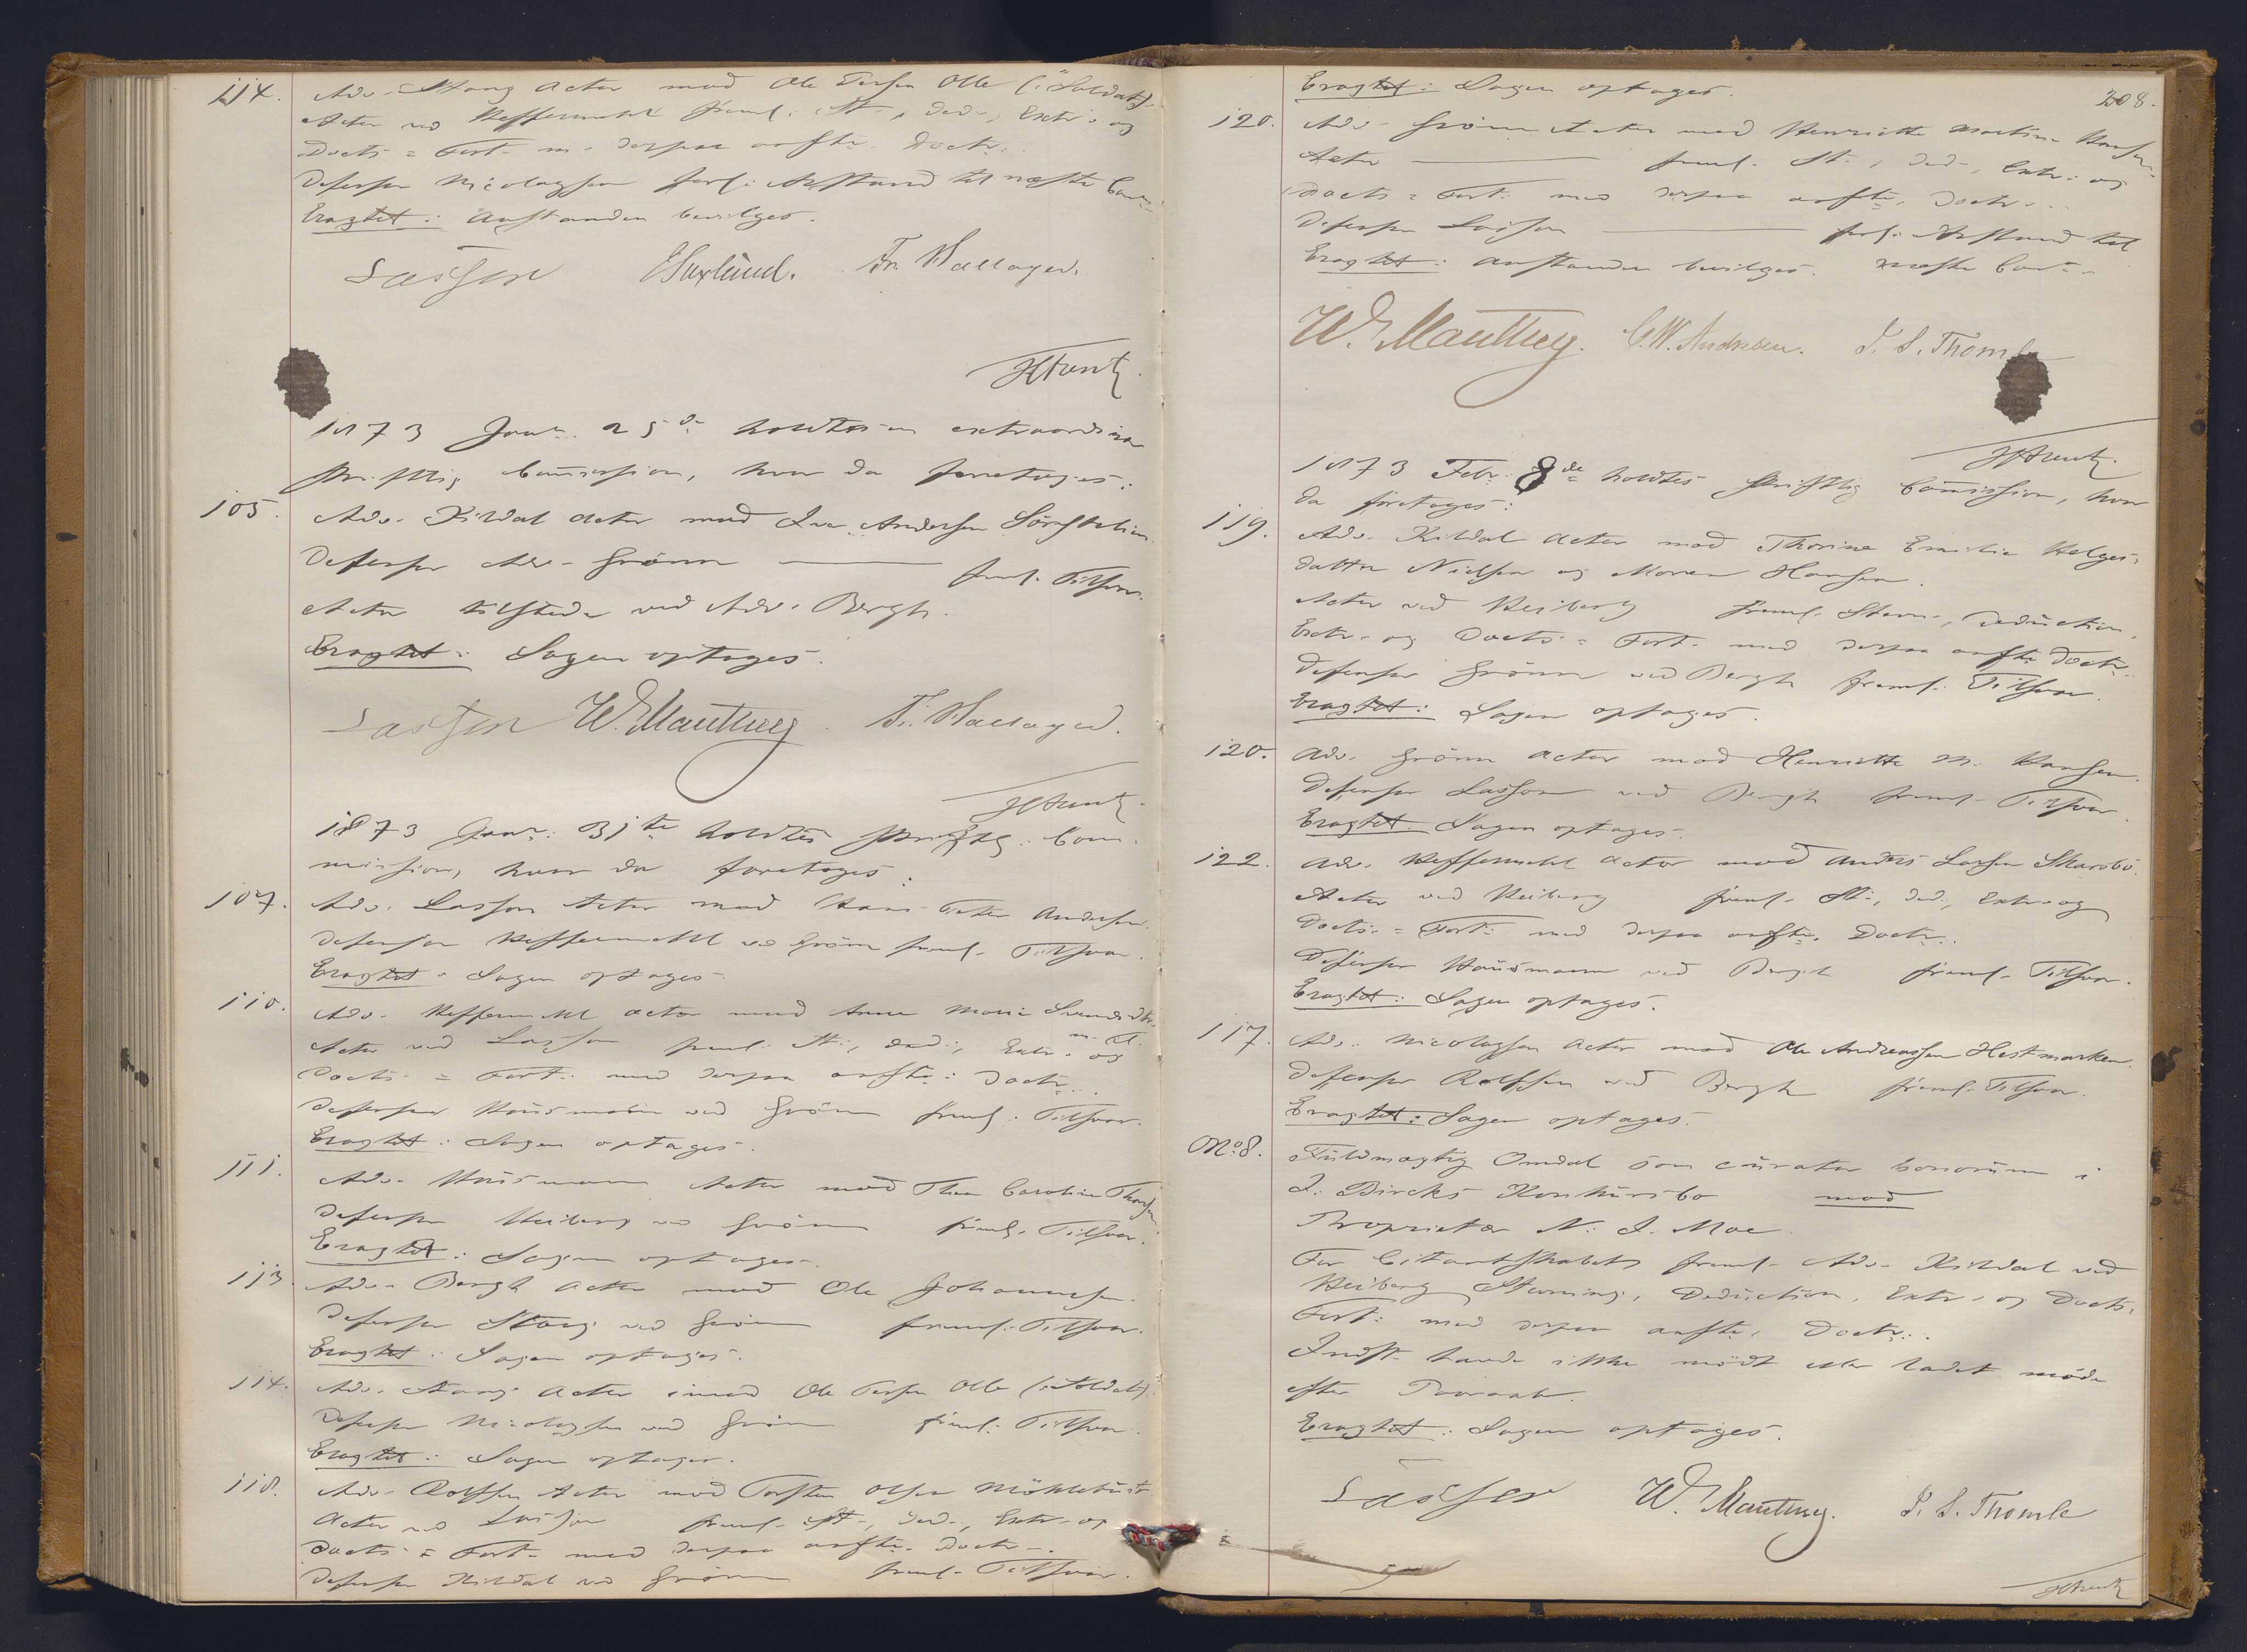 114. Adv. Stang Actor mod Ole Olle (: Soldat).
Actor ved Keffermehl freml. St., Ded., Extr. og
Docts = Fort. m. derpaa anfte. Doctr.
Defensor Nicolaysen forl. Anstand til næste
Eragtet: Anstanden bevilges.
Lasson Fr. Hallager.
1873 Janr. 25de holdtes en extraordinær
skriftlig Comission, hvor da foretages:
105. Adv. Kildal Actor mod Iver Andersen
Defensor Adv. Grönn — freml. Tilsvar.
Actor tilstede ved Adv. Bergh.
Eragtet: Sagen optages.
Lasson W. Manthey. Fr. Hallager.
1873 Janr. 31te holdtes skriftlig Com-
mission, hvor da foretages:
107. Adv. Lasson Actor mod Hans Peter Andersen.
Defensor Keffermehl ved Grönn freml. Tilsvar.
Eragtet: Sagen optages.
110. Adv. Keffermehl Actor mod Anne Marie
m. fl.
Actor ved Lasson freml. St., Ded., Extr. og
Docts = Fort. med derpaa anfte. Doctr.
Defensor Hausmann ved Grönn freml. Tilsvar.
Eragtet: Sagen optages.
111. Adv. Hausmann Actor mod Thea Caroline
Defensor Heiberg ved Grönn freml. Tilsvar.
Eragtet: Sagen optages.
113. Adv. Bergh Actor mod Ole Johannesen.
Defensor Stang ved Grönn freml. Tilsvar.
Eragtet: Sagen optages.
114. Adv. Stang Actor imod Ole Olle (: Soldat).
Defensor Nicolaysen ved Grönn freml. Tilsvar.
Eragtet: Sagen optages.
118. Adv. Rolfsen Actor mod Torsten Olsen
Actor ved Lasson freml. St., Ded., Extr. og
Docts = Fort. med derpaa anfte. Doctr.
Defensor Kildal ved Grönn freml. Tilsvar.
308.
Eragtet: Sagen optages.
120. Adv. Grönn Actor mod Henriette Martine Hansen.
Actor — freml. St., Ded., Extr. og
Docts = Fort. med derpaa anfte. Doctr.
Defensor Lasson — forl. Anstand til
næste
Eragtet: Anstanden bevilges.
W. Manthey. C. W. Andresen. J. S. Thomle
1873 Febr. 8de holdtes skriftlig Comission, hvor
da foretages:
119. Adv. Kildal Actor mod Thorine Emilie Helges-
datter Nielsen og Maren Hansen.
Actor ved Heiberg freml. Stevn., Deduction,
Extr. og Docts = Fort. med derpaa anfte Doctr.
Defensor Grönn ved Bergh freml. Tilsvar.
Eragtet: Sagen optages.
120. Adv. Grönn Actor mod Henriette M. Hansen.
Defensor Lasson ved Bergh freml. Tilsvar.
Eragtet. Sagen optages.
122. Adv. Keffermehl Actor mod Anders Larsen
Actor ved Heiberg freml. St., Ded., Extr. og
Docts. = Fort. med derpaa anfte. Doctr.
Defensor Hausmann ved Bergh freml. Tilsvar.
Eragtet: Sagen optages.
117. Adv. Nicolaysen Actor mod Ole Andreassen Hestmarken.
Defensor Rolfsen ved Bergh freml. Tilsvar.
Eragtet: Sagen optages.
No. 8. Fuldmægtig Omdal som curator bonorum i
J. Bircks Konkursbo mod
Proprietær N. J. Moe.
For Citantskabet freml. Adv. Kildal ved
Heiberg Stevning, Deduction, Extr. og Docts.
Fort. med derpaa anfte. Doctr.
Indst. havde ikke mödt eller ladet möde
efter Paaraab.
Eragtet: Sagen optages.
Lasson W. Manthey. J. S. Thomle